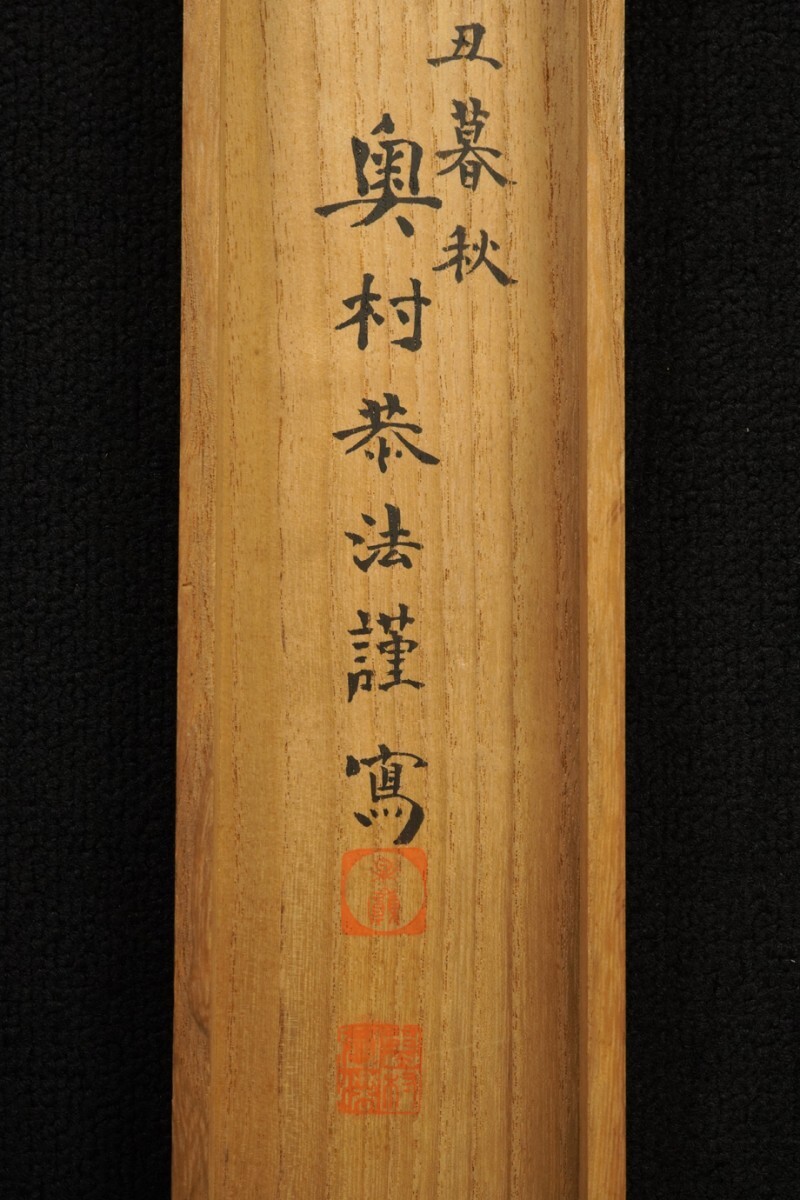 丑暮秋
奥村恭法謹寫